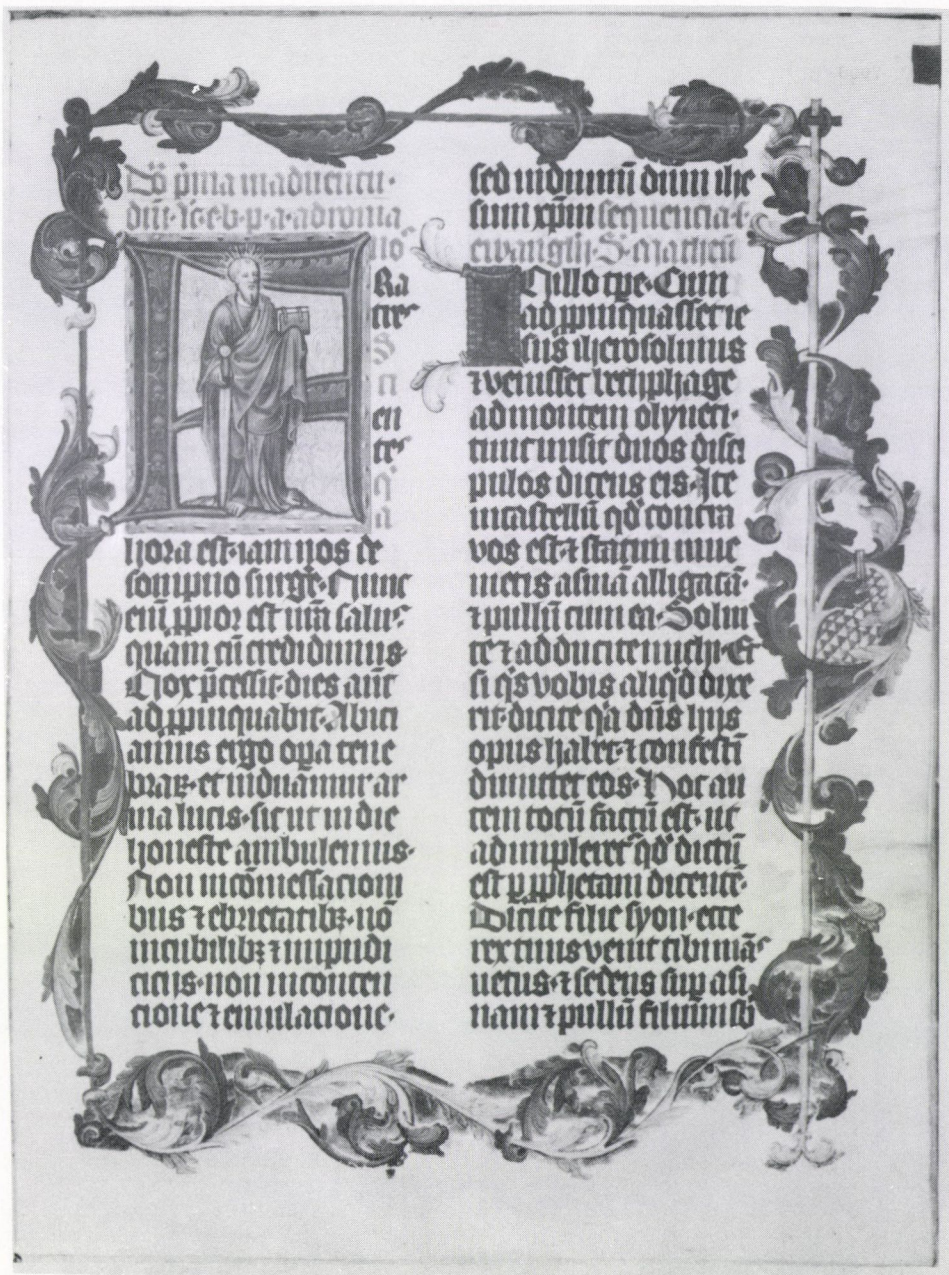 Do p̄ma in adventu
dni.
Ra
tres
S
ci
en
tes
q̄
a
hora est·iam nos de
sompno surge᷑·Nunc
eni᷑ ꝓpior est nr̄a salus·
quam cū credidimus·
Nox p̄cessit·dies aūt
adꝓpinquabit·Abici
amus ergo op̄a tene
braꝝ·et induamur ar
ma lucis·sicut in die
honeste ambulemus·
Non in cōmessacioni
bus ⁊ ebrietatibꝫ·nō
in cubilibꝫ ⁊ inpudi
citijs·non in conten
cione ⁊ emulacione·
sed induimī dn̄m ihe
sum xp̄m sequencia s·
ewangl̄ij·S·matheū
IN illo tp̄e·Cum
adꝓpinquasset ie
sus iherosolimis
⁊ venisset bethphage
ad montem olyueti·
tunc misit duos disci
pulos dicens eis·Ite
in castellū qd̄ contra
vos est·⁊ statim inue
nietis asinā alligatā·
⁊ pullū cum ea·Solui
te ⁊ adducite michi·Et
si q̄s vobis aliq̄d dixe
rit·dicite q̄a dn̄s hijs
opus habet·⁊ confesti᷑
dimittet eos·Hoc au
tem totū factū est·ut
adimpleret᷑ qd̄ dictū
est ꝑ ꝓphetam dicentē·
Dicite filie syon·ecce
rex tuus venit tibi māsᵉ
uetus·⁊ sedens suꝑ asi
nam ⁊ pullū filium sb̄